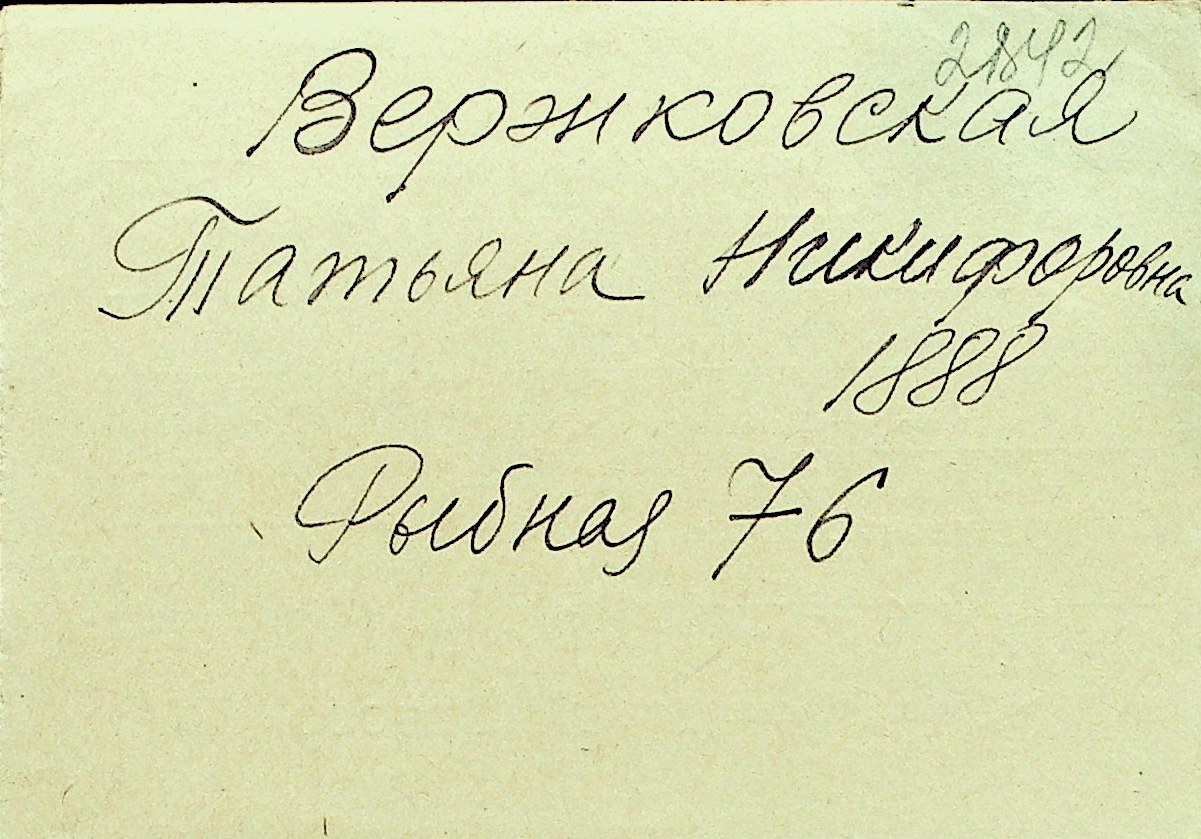 21842
Вержковская
Татьяна Никифоровна
1888
Рыбная 76